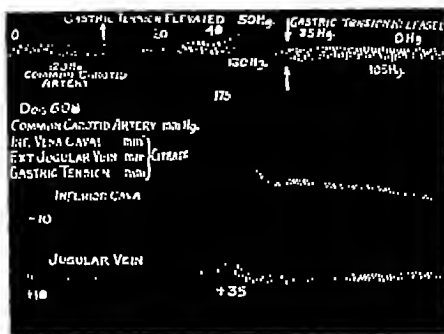 GASTRIC TENSION ELEVATED 50Hg. GASTRIC TENSION RELEASED
0 20 40 35Hg. 0Hg
120Hg 130Hg. 105Hg.
COMMON CAROTID
ARTERY
175
DOG 608
COMMON CAROTID ARTERY mm Hg.
INF. VENA CAVAL mm
EXT JUGULAR VEIN mm CITRATE
GASTRIC TENSION mm
INFERIOR CAVA
-10
JUGULAR VEIN
+10 +35